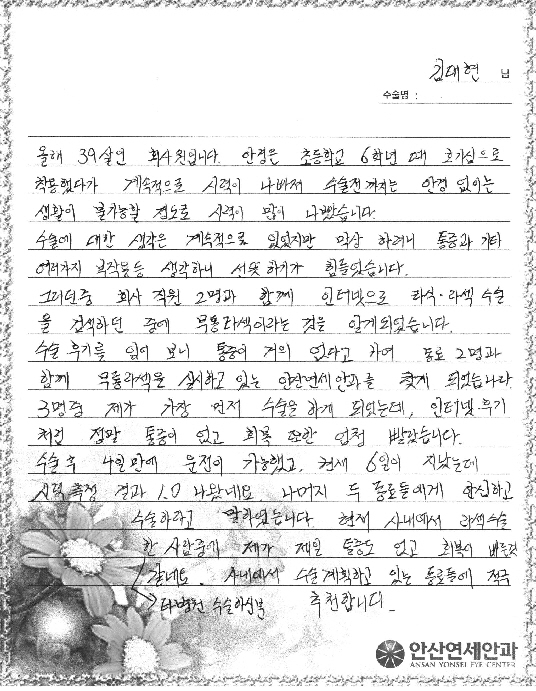 김대현 님
수술명 :
올해 39살인 회사원입니다. 안경은 초등학교 6학년 때 호기심으로
착용했다가 계속적으로 시력이 나빠져 수술전까지는 안경 없이는
생활이 불가능할 정도로 시력이 많이 나빴습니다.
수술에 대한 생각은 계속적으로 있었지만 막상 하려니 통증과 기타
여러가지 부작용등 생각하니 선뜻 하기가 힘들었습니다.
그러던중 회사 직원 2명과 함께 인터넷으로 라식·라섹 수술
을 검색하던 중에 무통라섹이라는 것을 알게되었습니다.
수술 후기를 읽어 보니 통증이 거의 없다고 하여 동료 2명과
함께 무통라섹을 실시하고 있는 안산연세안과를 찾게 되었습니다
3명중 제가 가장 먼저 수술을 하게 되었는데, 인터넷 후기
처럼 정말 통증이 없고 회복 또한 엄청 빨랐습니다.
수술 후 4일만에 운전이 가능했고, 현재 6일이 지났는데
시력측정 결과 1.0 나왔네요. 나머지 두 동료들에게 안심하고
수술하라고 말하였습니다. 현재 사내에서 라섹수술
한 사람중에 제가 제일 통증도 없고 회복이 빠른것
같네요. 사내에서 수술계획하고 있는 동료들에 적극
→ 타병원 수술하신분 추천합니다.
안산연세안과
ANSAN YONSEI EYE CENTER